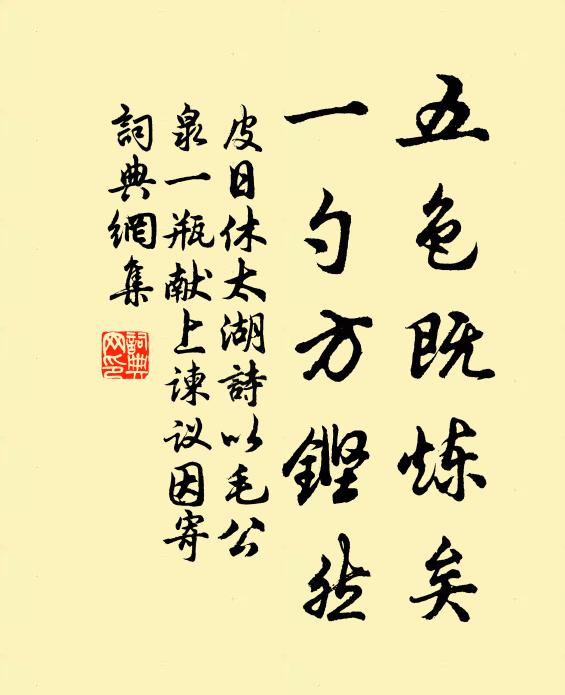 五色既炼矣
一勺方鏗然
皮日休太湖詩以毛公
泉一瓶献上谏议因寄
詞典網集
詞典
网印